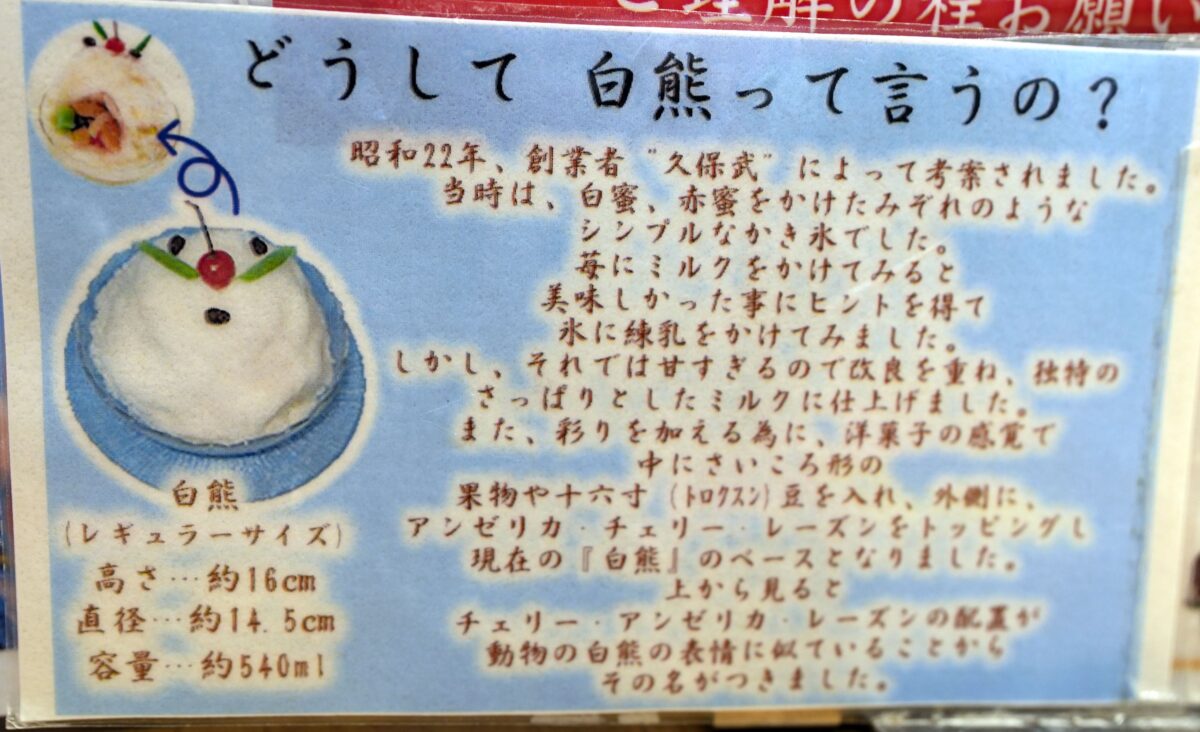 ご理解の程お願い
どうして 白熊って言うの？
昭和22年、創業者“久保武”によって考案されました。
当時は、白蜜、赤蜜をかけたみぞれのような
シンプルなかき氷でした。
苺にミルクをかけてみると
美味しかった事にヒントを得て
氷に練乳をかけてみました。
しかし、それでは甘すぎるので改良を重ね、独特の
さっぱりとしたミルクに仕上げました。
また、彩りを加える為に、洋菓子の感覚で
中にさいころ形の
果物や十六寸（トロクスン）豆を入れ、外側に、
アンゼリカ・チェリー・レーズンをトッピングし
現在の『白熊』のベースとなりました。
上から見ると
チェリー・アンゼリカ・レーズンの配置が
動物の白熊の表情に似ていることから
その名がつきました。
白熊
(レギュラーサイズ)
高さ…約16cm
直径…約14.5cm
容量…約540ml